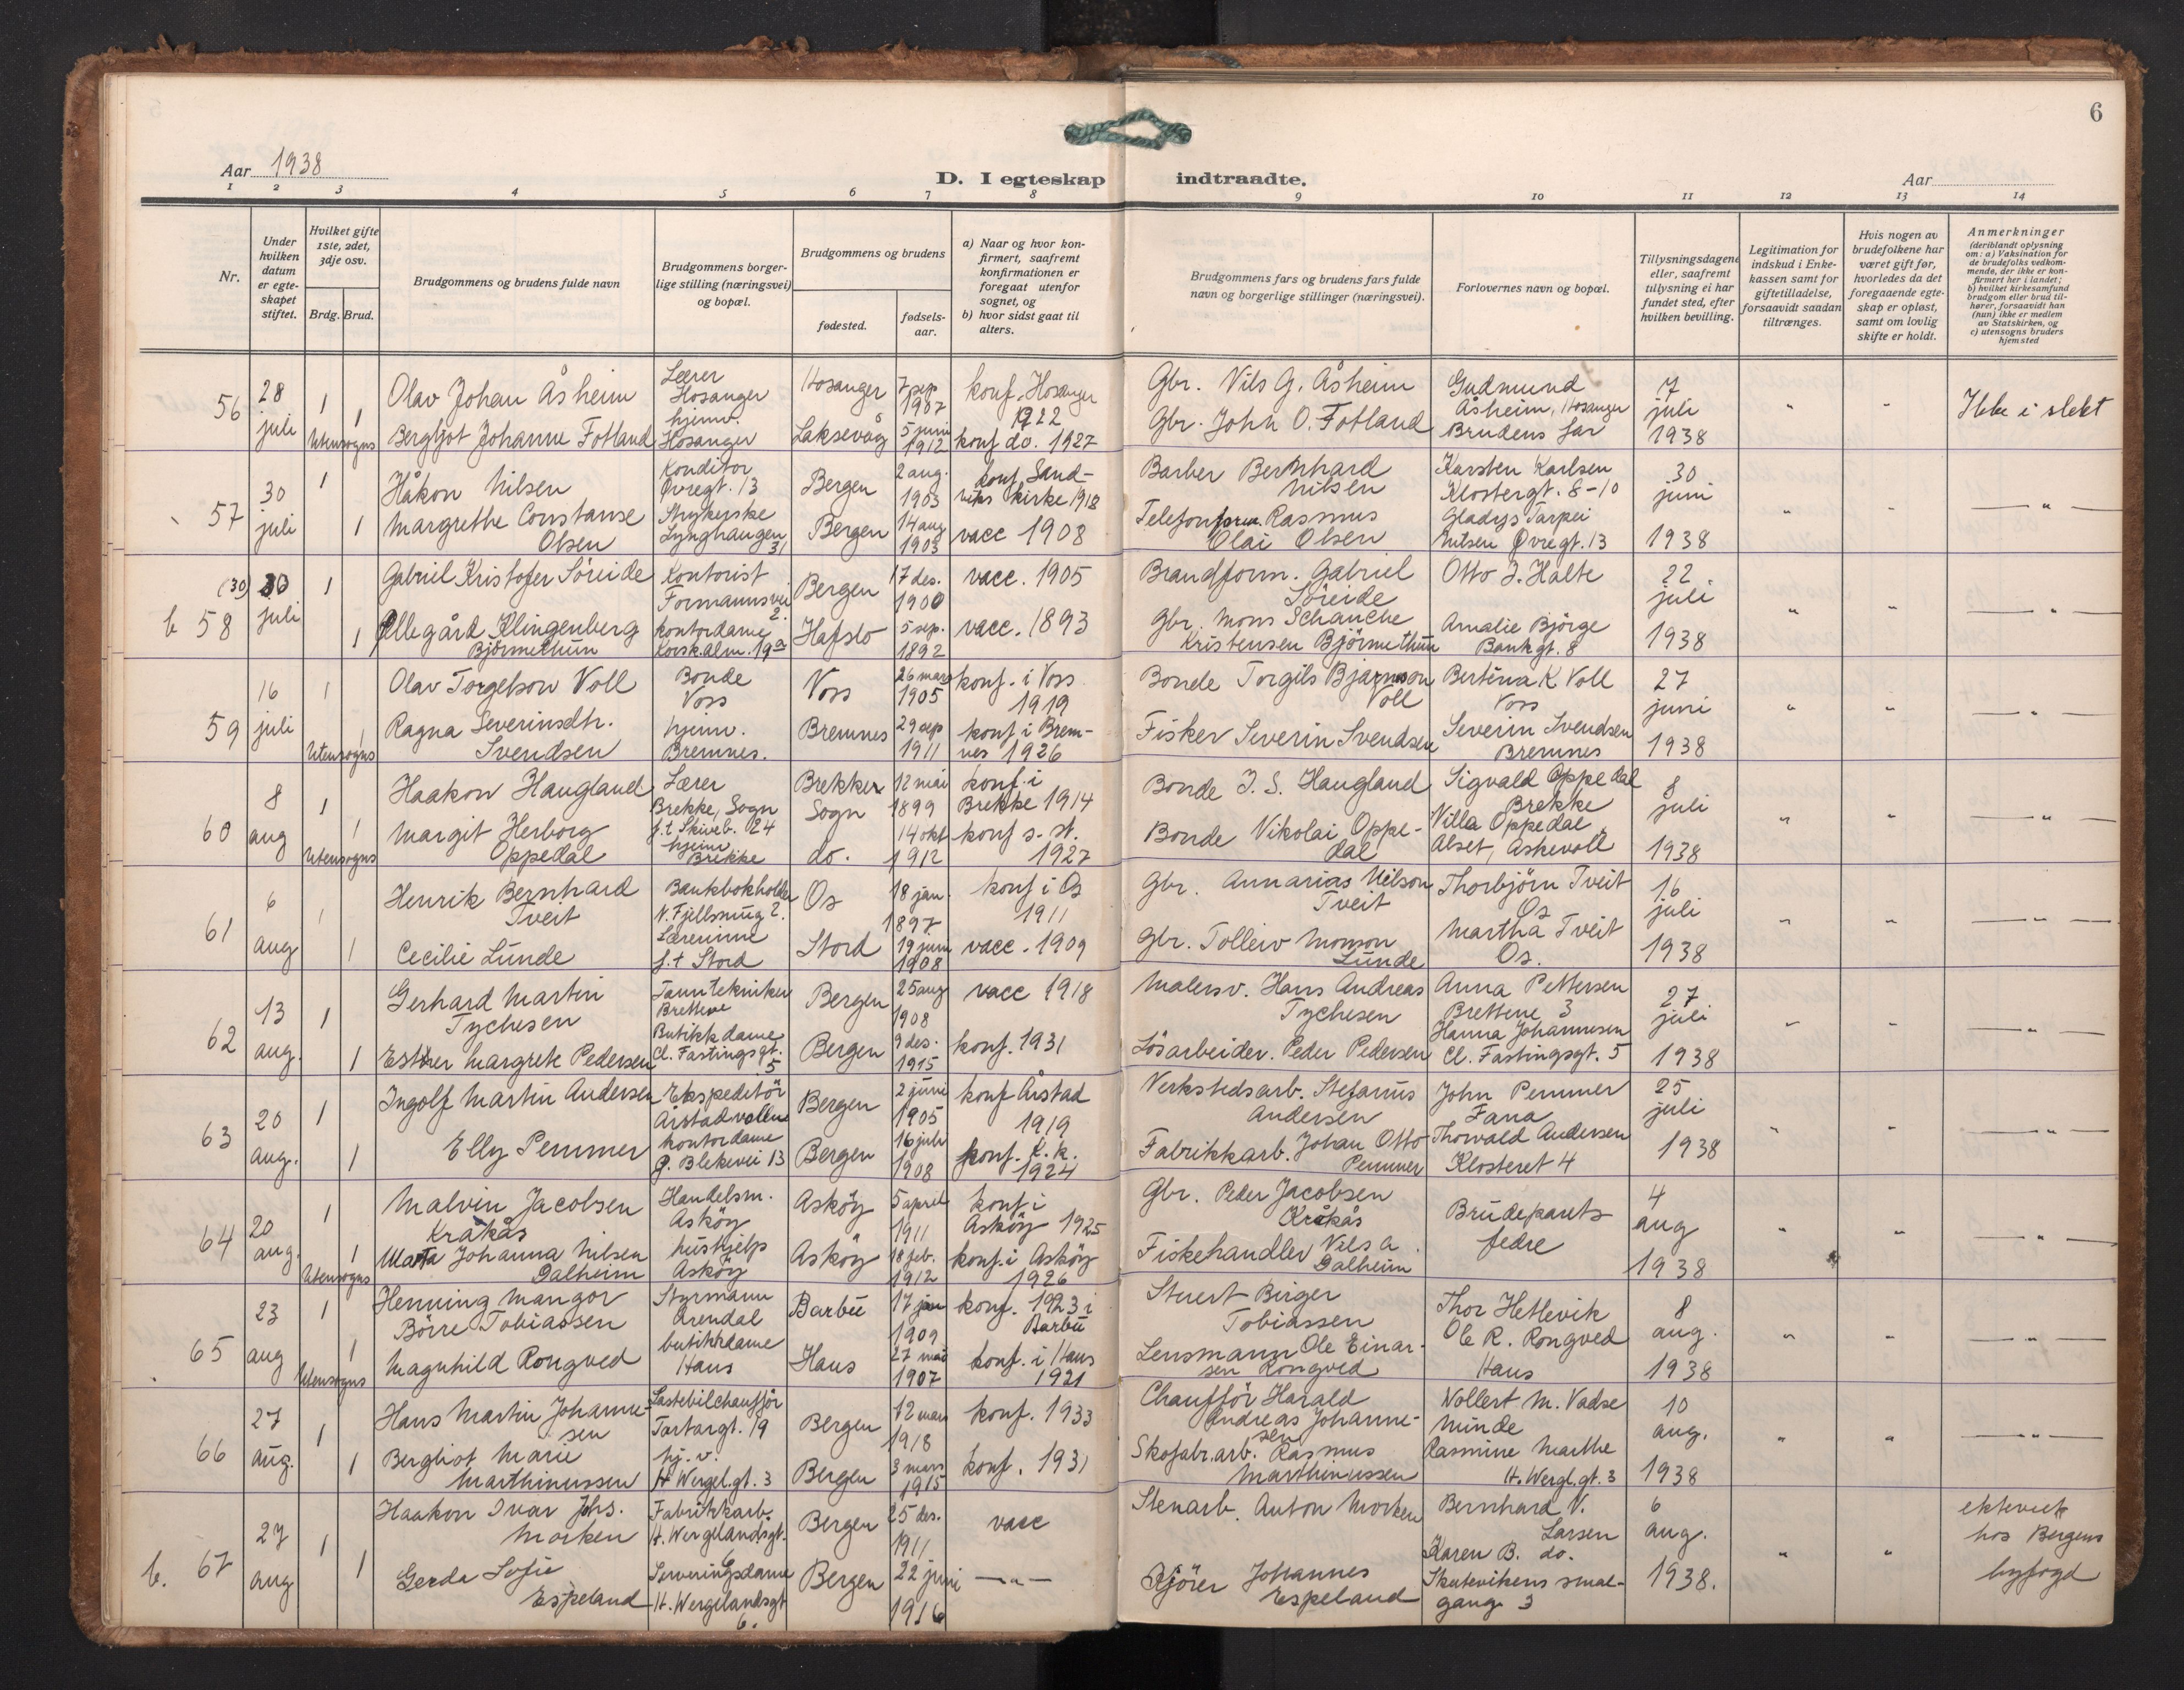 6
Aar 1938
D. I egteskap indtraadte.
Aar
1 2 3 4 5 6 7 8 9 10 11 12 13 14
Nr.
Under hvilken datum er egte-skapet stiftet.
Hvilket gifte 1ste, 2det, 3dje osv.
Brdg. Brud.
Brudgommens og brudens fulde navn
Brudgommens borger-lige stilling (næringsvei) og bopæl.
Brudgommens og brudens
fødested.
fødsels-aar.
a) Naar og hvor kon-firmert, saafremt konfirmationen er foregaat utenfor sognet, og
b) hvor sidst gaat til alters.
Brudgommens fars og brudens fars fulde navn og borgerlige stillinger (næringsvei).
Forlovernes navn og bopæl.
Tillysningsdagene eller, saafremt tillysning ei har fundet sted, efter hvilken bevilling.
Legitimation for indskud i Enke-kassen samt for giftetilladelse, forsaavidt saadan tiltrænges.
Hvis nogen av brudefolkene har været gift før, hvorledes da det foregaaende egte-skap er opløst, samt om lovlig skifte er holdt.
Anmerkninger (deriblandt oplysning om: a) Vaksination for de brudefolks vedkom-mende, der ikke er kon-firmert her i landet; b) hvilket kirkesamfund brudgom eller brud til-hører, forsaavidt han (hun) ikke er medlem av Statskirken, og c) utensogns bruders hjemsted
56 28 juli 1 Olav Johan Åsheim Lærer Hosanger Hosanger 7 sep 1907 konf. Hosanger 1922 Gbr. Nils G. Åsheim Gudmund Åsheim, Hosanger 7 juli 1938 " " Ikke i slekt
1 Utensogns Bergljot Johanne Fotland hjemv. Hosanger Laksevåg 5 juni 1912 konf do. 1927 Gbr. John O. Fotland Brudens far
57 30 juli 1 Håkon Nilsen Konditor Øvregt. 13 Bergen 2 aug. 1903 konf. Sand-vikens kirke 1918 Barber Bernhard Nilsen Karsten Karlsen Klostergt. 8-10 30 juni 1938 " " — " —
1 Margrethe Constanse Olsen Strykerske Lynghaugen 31 Bergen 14 aug 1903 vacc 1908 Telefonform. Rasmus Olai Olsen Gladys Tarpei Nilsen Øvregt. 13
b 58 (30) 30 juli 1 Gabriel Kristofer Söreide Kontorist Formannsvei 2. Bergen 17 des. 1900 vacc. 1905 Brandform. Gabriel Söreide Otto J. Halte 22 juli 1938 " " — " —
1 Ollegård Klingenberg Björmethun kontordame Korsk.alm. 19a Hafslo 5 sep. 1892 vacc. 1893 Gbr. Mons Schanche Kristensen Björmethun Amalie Björge Bankgt. 8
59 16 juli 1 Olav Torgelson Voll Bonde Voss Voss 26 mars 1905 konf. i Voss 1919 Bonde Torgils Bjarnson Voll Bertina K Voll Voss 27 juni 1938 " " — " —
1 Utensogns Ragna Severinsdtr. Svendsen hjemv. Bremnes. Bremnes 29 sep 1911 konf i Brem-nes 1926 Fisker Severin Svendsen Severin Svendsen Bremnes
60 8 aug 1 Haakon Haugland Lærer Brekke, Sogn f.t Skiveb. 24 Brekke Sogn 12 mai 1899 konf. i Brekke 1914 Bonde J. S. Haugland Sigvald Oppedal Brekke 8 juli 1938 " " — " —
1 Utensogns Margit Herborg Oppedal hjemv Brekke do. 14 okt 1912 konf s. st. 1927 Bonde Vikolai Oppe-dal Villa Oppedal Alset, Askevoll
61 6 aug 1 Henrik Bernhard Tveit Bankbokholder N. Fjellsmug 2. Os 18 jan. 1897 konf i Os 1911 Gbr. Annarias Nilson Tveit Thorbjörn Tveit Os 16 juli 1938 " " — " —
1 Cecilie Lunde Lærerinne f.t Stord Stord 19 juni 1908 vacc. 1909 Gbr. Tolleiv Monson Lunde Martha Tveit Os.
62 13 aug. 1 Gerhard Martin Tychesen Tanntekniker Bretteve Bergen 25 aug 1908 vacc 1918 Malersv. Hans Andreas Tychesen Anna Pettersen Brettene 3 27 juli 1938 " " — " —
1 Esther Margrete Pedersen Butikkdame Cl. Fastingsgt. 5 Bergen 9 des. 1915 konf. 1931 Lösarbeider. Peder Pedersen Hanna Johannesen Cl. Fastingsgt. 5
63 20 aug. 1 Ingolf Martin Andersen Ekspeditör Årstadvollen Bergen 2 juni 1905 konf Årstad 1919 Verkstedsarb. Stefanus Andersen John Pemmer Fana 25 juli 1938 " " — " —
1 Elly Pemmer kontordame G. Blekevei 13 Bergen 16 juli 1908 konf. k. k. 1924 Fabrikkarb. Johan Otto Pemmer Thorvald Andersen Klosteret 4
64 20 aug. 1 Malvin Jacobsen Kråkås Handelsm. Asköy Asköy 5 april 1911 konf. i Asköy 1925 Gbr. Peder Jacobsen Kråkås Brudeparets fedre 4 aug 1938 " " — " —
1 Utensogns Marta Johanna Nilsen Dalheim hushjelp Asköy Asköy 18 feb. 1912 konf. i Asköy 1926 Fiskehandler Nils A. Dalheim
65 23 aug 1 Henning Mangor Börre Tobiassen Styrmann Arendal Barbu 17 jan 1909 konf. 1923 i Barbu Stuert Birger Tobiassen Thor Hetlevik 8 aug. 1938 " " — " —
1 Utensogns Magnhild Rongved butikkdame Haus Haus 27 mai 1907 konf. i Haus 1921 Lensmann Ole Einar-sen Rongved Ole R. Rongved Haus
66 27 aug. 1 Hans Martin Johanne-sen Lastebilchauffør Tartargt. 19 Bergen 12 mars 1918 konf. 1933 Chauffør Harald Andreas Johanne-sen Vollert M. Vadse Minde 10 aug. 1938 " " — " —
1 Bergliot Marie Marthinussen hj. v. H Wergel.gt. 3 Bergen 3 mars 1915 konf. 1931 Skofabr.arb. Rasmus Marthinussen Rasmine Marthe H. Wergl.gt. 3
b. 67 27 aug 1 Haakon Ivar Johs. Morken Fabrikkarb. H. Wergelandsgt. 6 Bergen 25 des. 1911 vacc Stenarb. Anton Morken Bernhard V. Larsen 6 aug. 1938. " " ekteviet hos Bergens byfogd
1 Gerda Sofie Espeland Serveringsdame H. Wergelandsgt 6. Bergen 22 juni 1916 — " — Kjörer Johannes Espeland Karen B. do. Skutevikens smal-gang 3